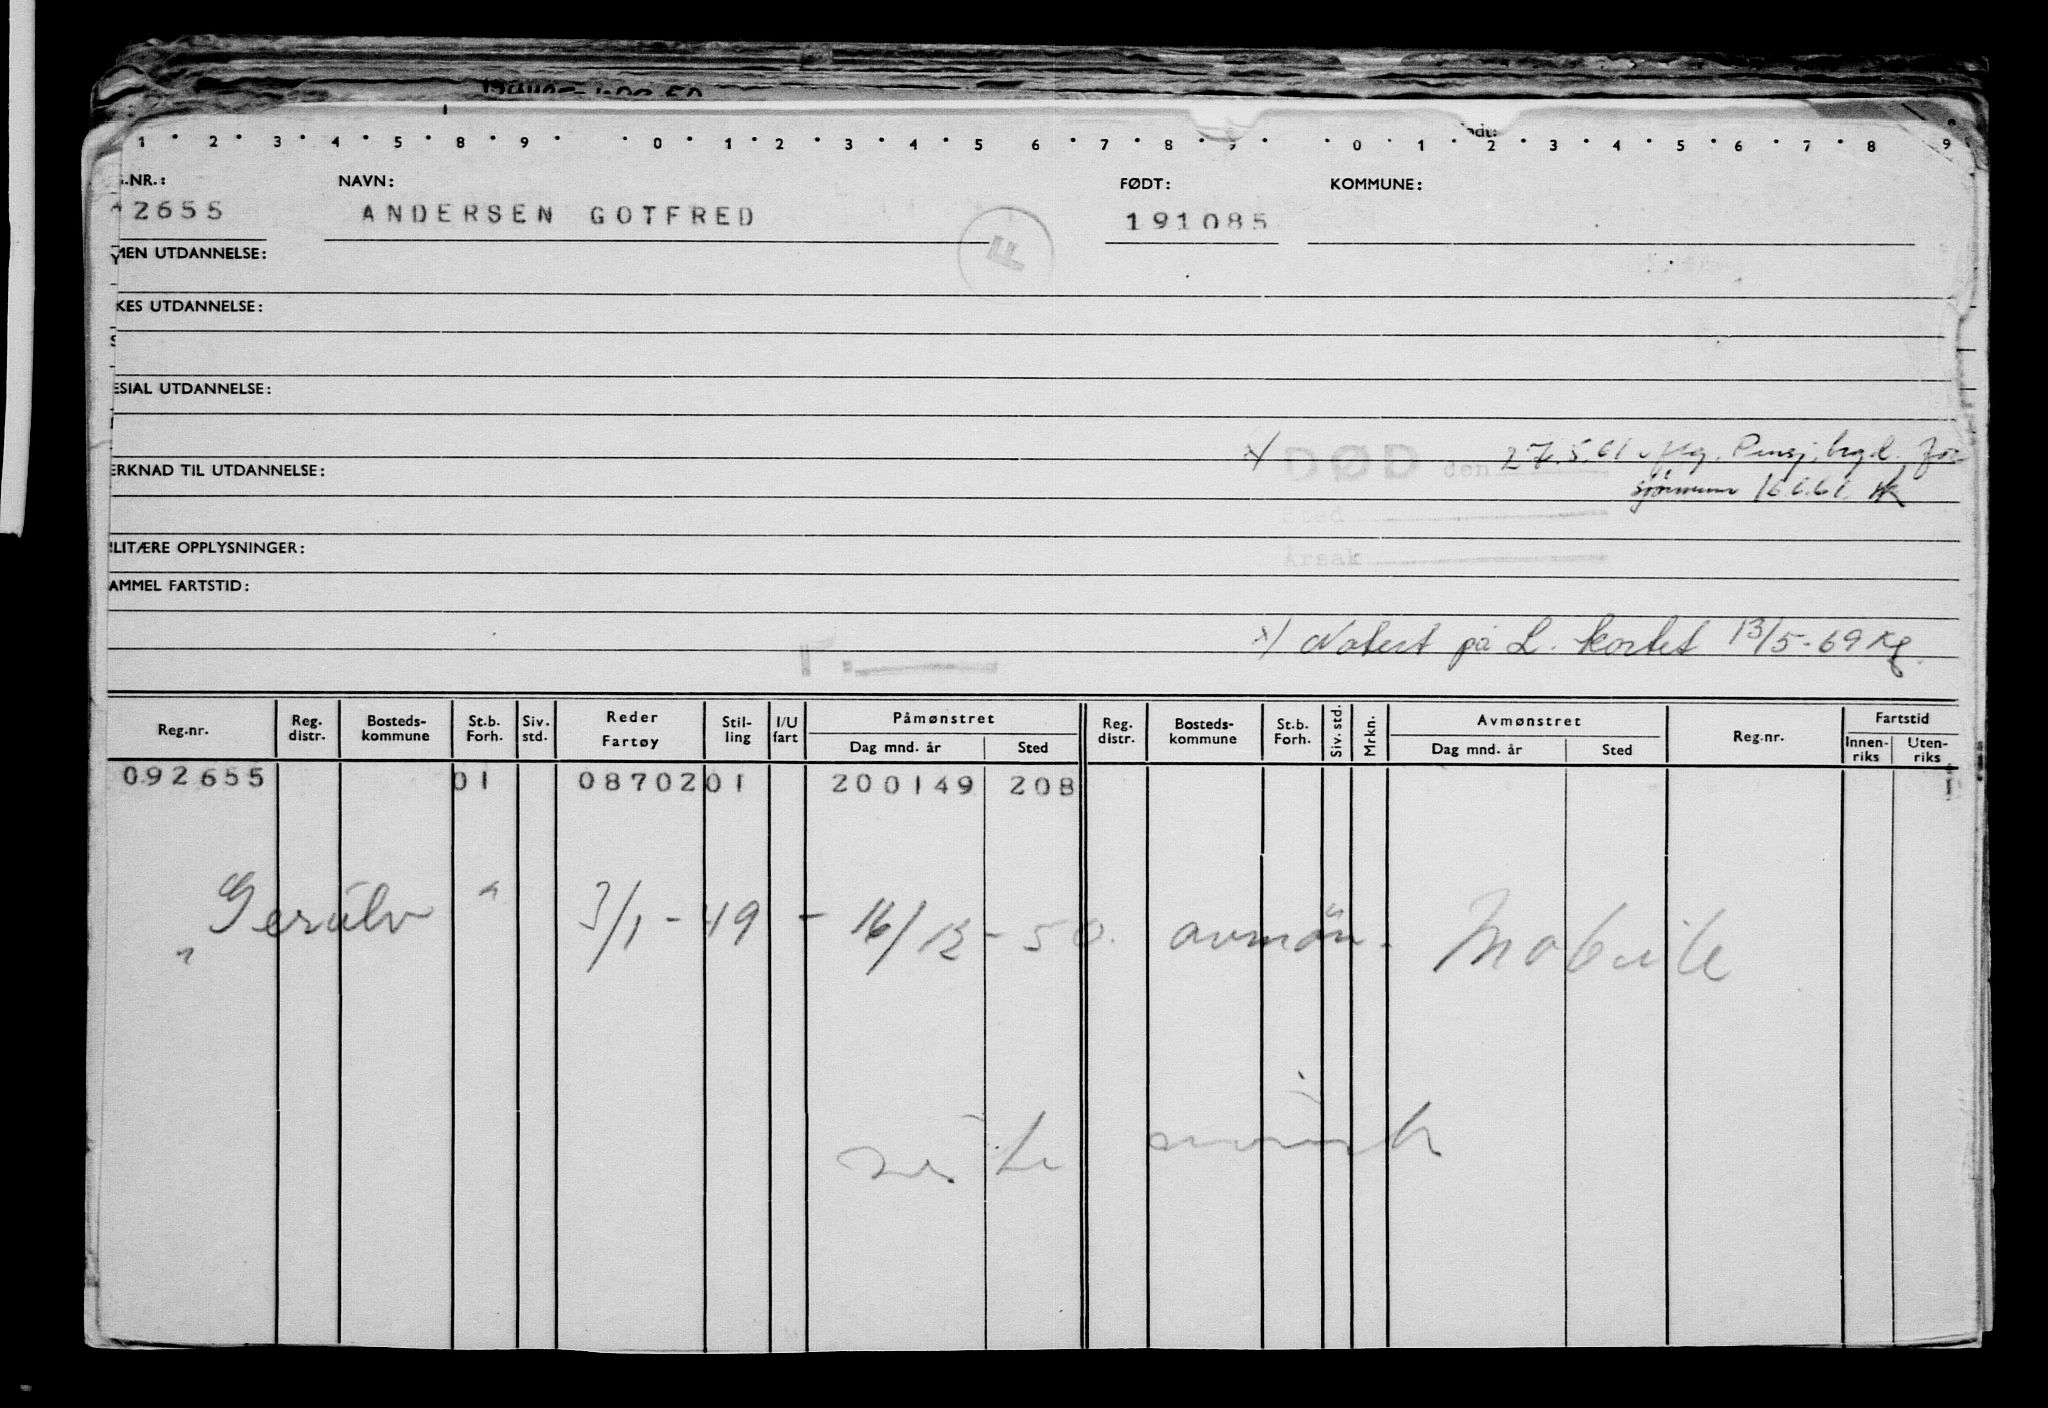 1 2 3 4 5 8 9 0 1 2 3 4 5 6 7 8 9 0 1 2 3 4 5 6 7 8 9
.NR.: NAVN: FØDT: KOMMUNE:
2655 ANDERSEN GOTFRED 191085
F
MEN UTDANNELSE:
KES UTDANNELSE:
ESIAL UTDANNELSE:
x/ DØD den 27.5.61 Pensj. for
ERKNAD TIL UTDANNELSE:
sjømenn 16.6.61
Sted
LITÆRE OPPLYSNINGER:
Årsak
AMMEL FARTSTID:
x/ Notert på L. kortet 13/5-69 Kg.
Reg.nr. Reg. distr. Bosteds-kommune St.b. Forh. Siv. std. Reder Fartøy Stil-ling I/U fart Påmønstret Dag mnd. år Sted Reg. distr. Bosteds-kommune St.b. Forh. Siv. std. Mrkn. Avmønstret Dag mnd. år Sted Reg.nr. Fartstid Innen-riks Uten-riks
092655 01 0870201 200149 208
"Gerulv" 3/1-49 - 16/12-50. avmön. Mobile